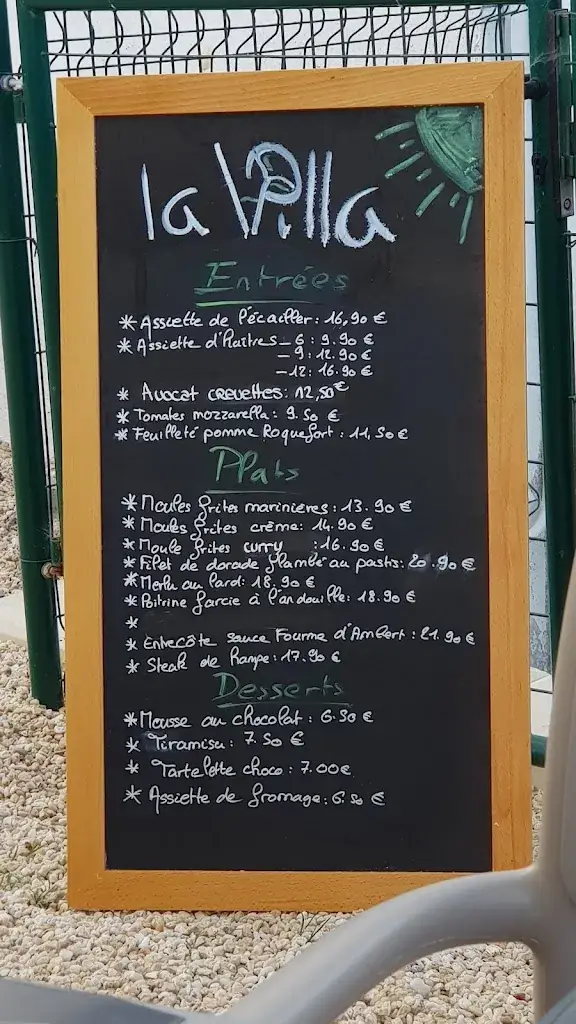 la Villa
Entrées
* Assiette de l'écailler : 16,90 €
* Assiette d'Huîtres - 6 : 9.90 €
- 9 : 12.90 €
- 12 : 16.90 €
* Avocat crevettes : 12,50 €
* Tomates mozzarella : 9.50 €
* Feuilleté pomme Roquefort : 11,50 €
Plats
* Moules frites marinières : 13.90 €
* Moules frites crème : 14.90 €
* Moule frites curry : 16.90 €
* Filet de dorade flambé au pastis : 20.90 €
* Merlu au lard : 18.90 €
* Poitrine farcie à l'andouille : 18.90 €
*
* Entrecôte sauce Fourme d'Ambert : 21.90 €
* Steak de hampe : 17.90 €
Desserts
* Mousse au chocolat : 6.50 €
* Tiramisu : 7.50 €
* Tartelette choco : 7.00 €
* Assiette de fromage : 6.50 €